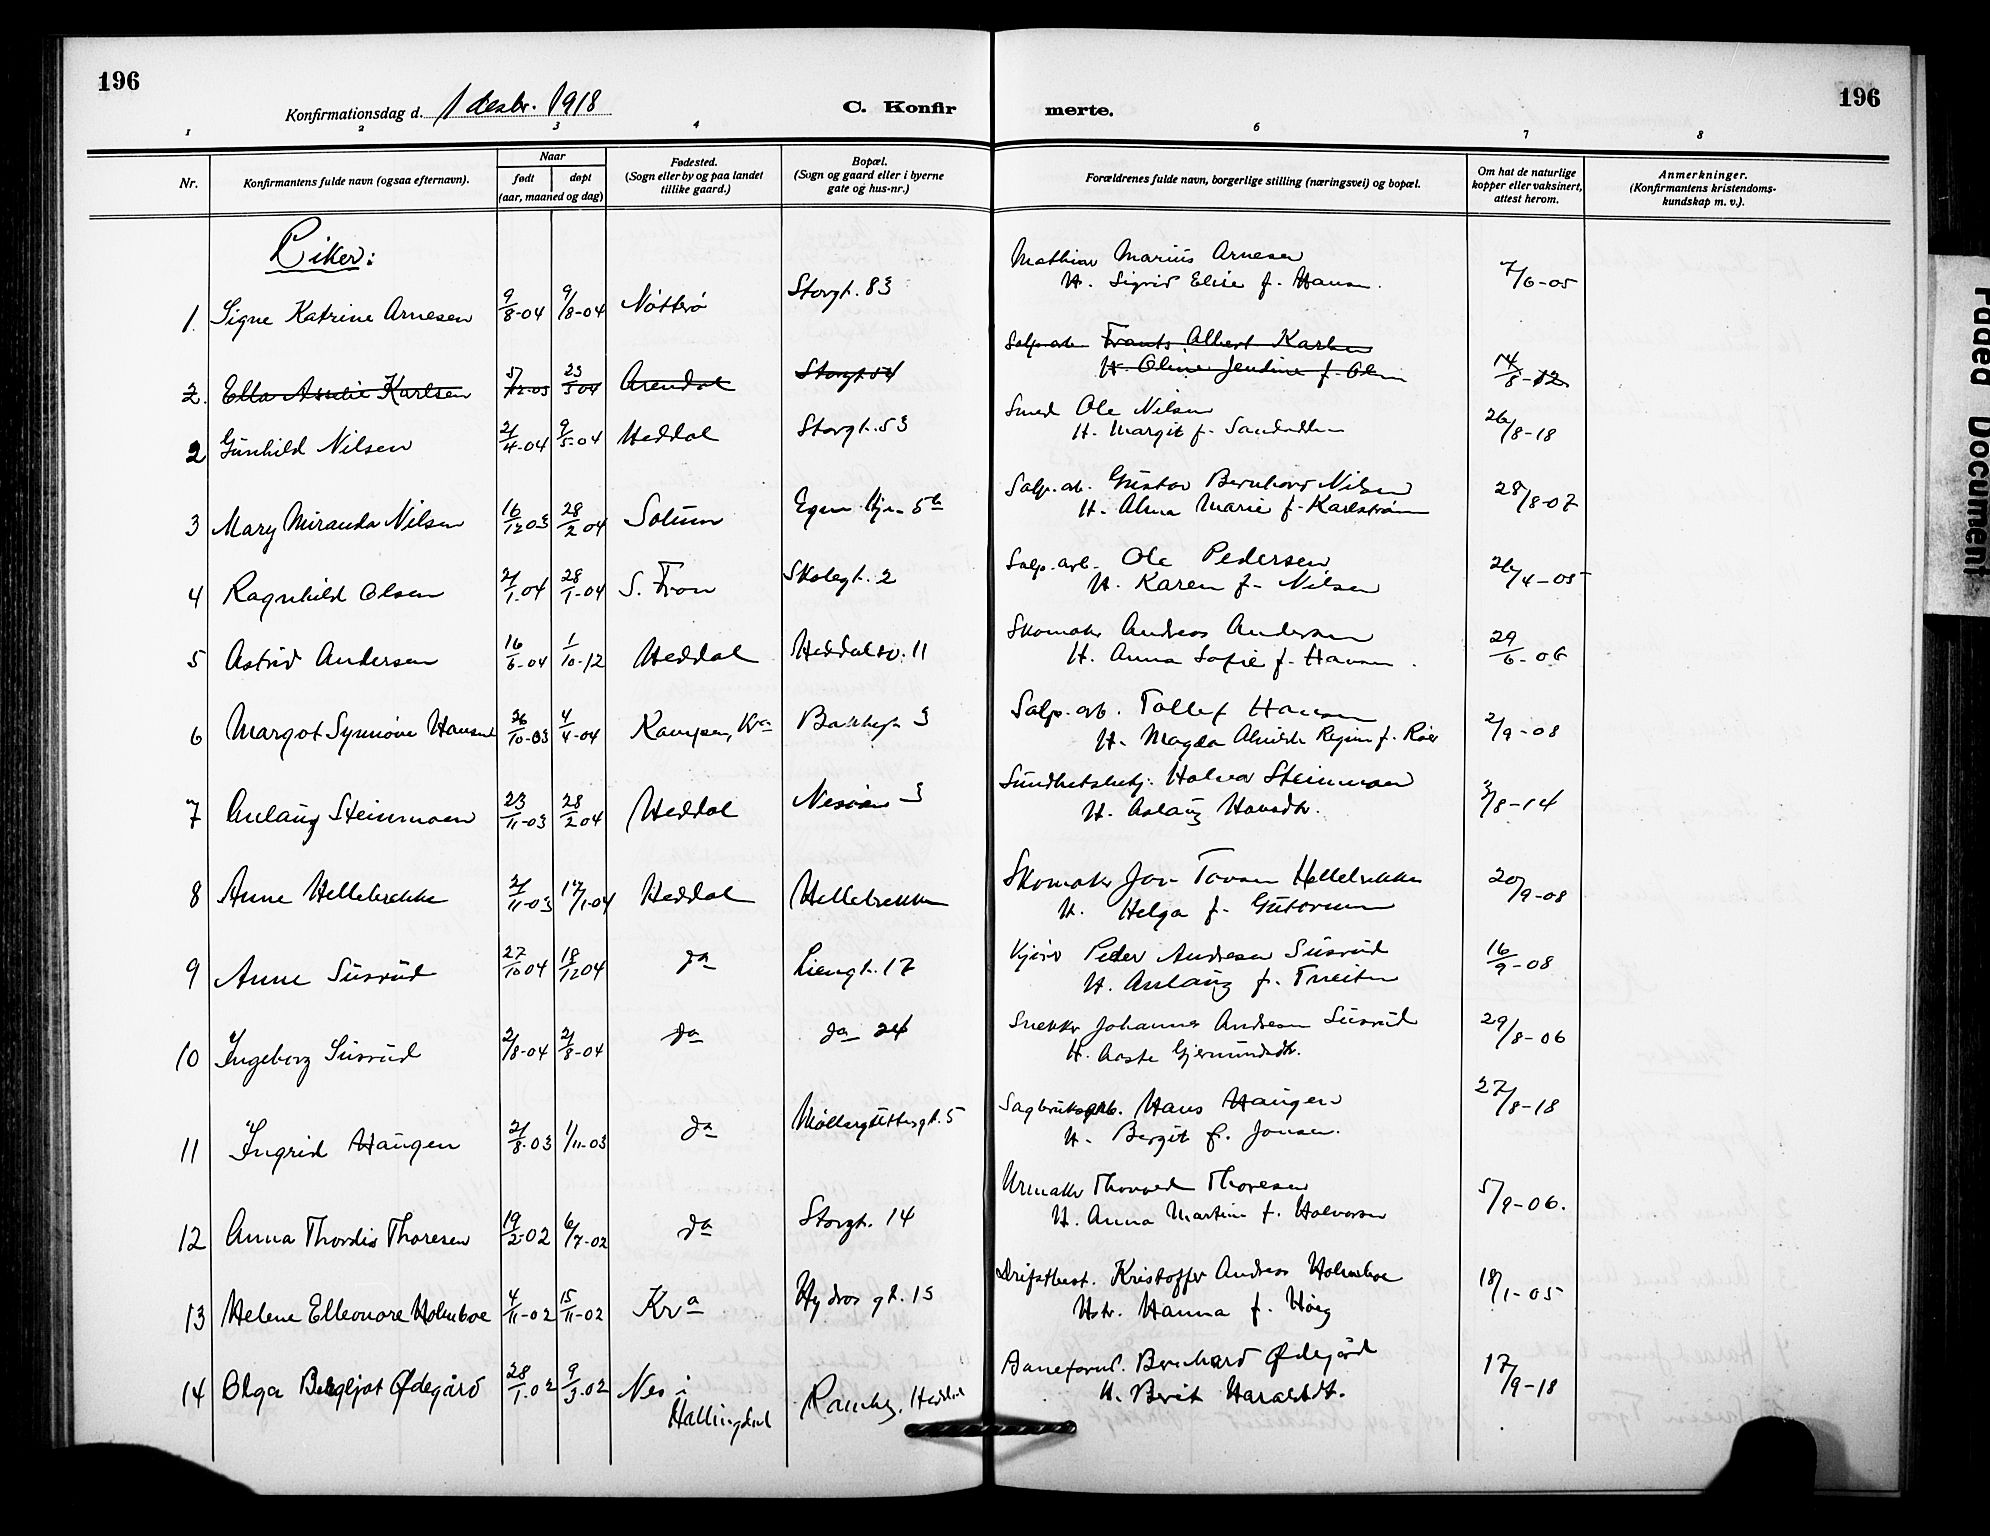 196
Konfirmationsdag d. 1 desbr. 1918
C. Konfir merte.
196
1 2 3 4 6 7 8
Nr.
Konfirmantens fulde navn (ogsaa efternavn).
Naar
født døpt
(aar, maaned og dag)
Fødested.
(Sogn eller by og paa landet
tillike gaard.)
Bopæl.
(Sogn og gaard eller i byerne
gate og hus-nr.)
Forældrenes fulde navn, borgerlige stilling (næringsvei) og bopæl.
Om hat de naturlige
kopper eller vaksinert,
attest herom.
Anmerkninger.
(Konfirmantens kristendoms-
kundskap m. v.).
Piker:
Mathias Marius Arnesen
1. Signe Katrine Arnesen 9/8-04 9/8-04 Nøtterø Storgt. 83 H. Sigrid Elise f. Hansen. 7/6-05
Salp. arb. Frants Albert Karlsen
2. Ella Amelie Karlsen 5/12-03 23/5 04 Arendal Storgt. 54 H. Oline Jendine f. Olsen 14/8-12
Smed Ole Nilsen
2 Gunhild Nilsen 2/4-04 9/5-04 Heddal Storgt. 53 H. Margit f. 26/8-18
Salp. arb. Gustav Bernhard Nilsen
3 Mary Miranda Nilsen 16/12 03 28/2 04 Solum Egen Hjem 5b H. Alma Marie f. Karlstrøm 28/8-07
Salp. arb. Ole Pedersen
4 Ragnhild Olsen 2/1.04 28/1-04 S. Fron Skolegt. 2 H. Karen f. Nilsen 26/4-05
Skomaker Andreas Andersen
5 Astrid Andersen 16/6-04 1/10-12 Heddal Heddalsv. 11 H. Anna Sofie f. Hansen. 29/6-06
Salp. arb. Tollef Hansen
6 Margot Synnøve Hansen 26/10-03 4/4-04 Kampen, Kra Bakkegt 3 H. Magda Regine f. 2/9-08
Sundhetsbetj. Halvor Steinmoen
7 Aslaug Steinmoen 23/11-03 28/2 04 Heddal Nesøen 3 H. Aslaug Hansdtr. 3/8-14
Skomaker Jon Tovsen Hellebrekke
8 Anne Hellebrekke 2/11-03 17/1-04 Heddal Hellebrekke H. Helga f. Guttormsen 20/9-08
Kjører Peder Andresen Susrud
9 Anne Susrud 27/10 04 18/12 04 do Liengt. 17 H. Aslaug f. Tveiten 16/9-08
Snekker Johannes Andresen Susrud
10 Ingeborg Susrud 2/8-04 2/8-04 do do 24 H. Aaste Gjermundsdtr. 29/8-06
Sagbruksarb. Hans Haugen
11 Ingrid Haugen 2/8-03 1/11-03 do Møllerguttersgt. 5 H. Bergit f. Jonsen. 27/8-18
Urmaker Thorvald Thoresen
12 Anna Thordis Thoresen 19/2-02 6/7-02 do Storgt. 14 H. Anna Martine f. Halvorsen 5/9-06.
Driftsbest. Kristoffer Andreas Holmboe
13 Helene Elleonore Holmboe 4/11-02 15/11-02 Kra Hydros gt. 15 Hstr. Hanna f. Høeg 18/1-05
Baneformd. Bernhard Ødegård
14 Olga Bergljot Ødegård 28/1.02 9/3.02 Nes i
Hallingdal Heddal H. Berit Haraldsdtr. 17/9-18
Faded Document